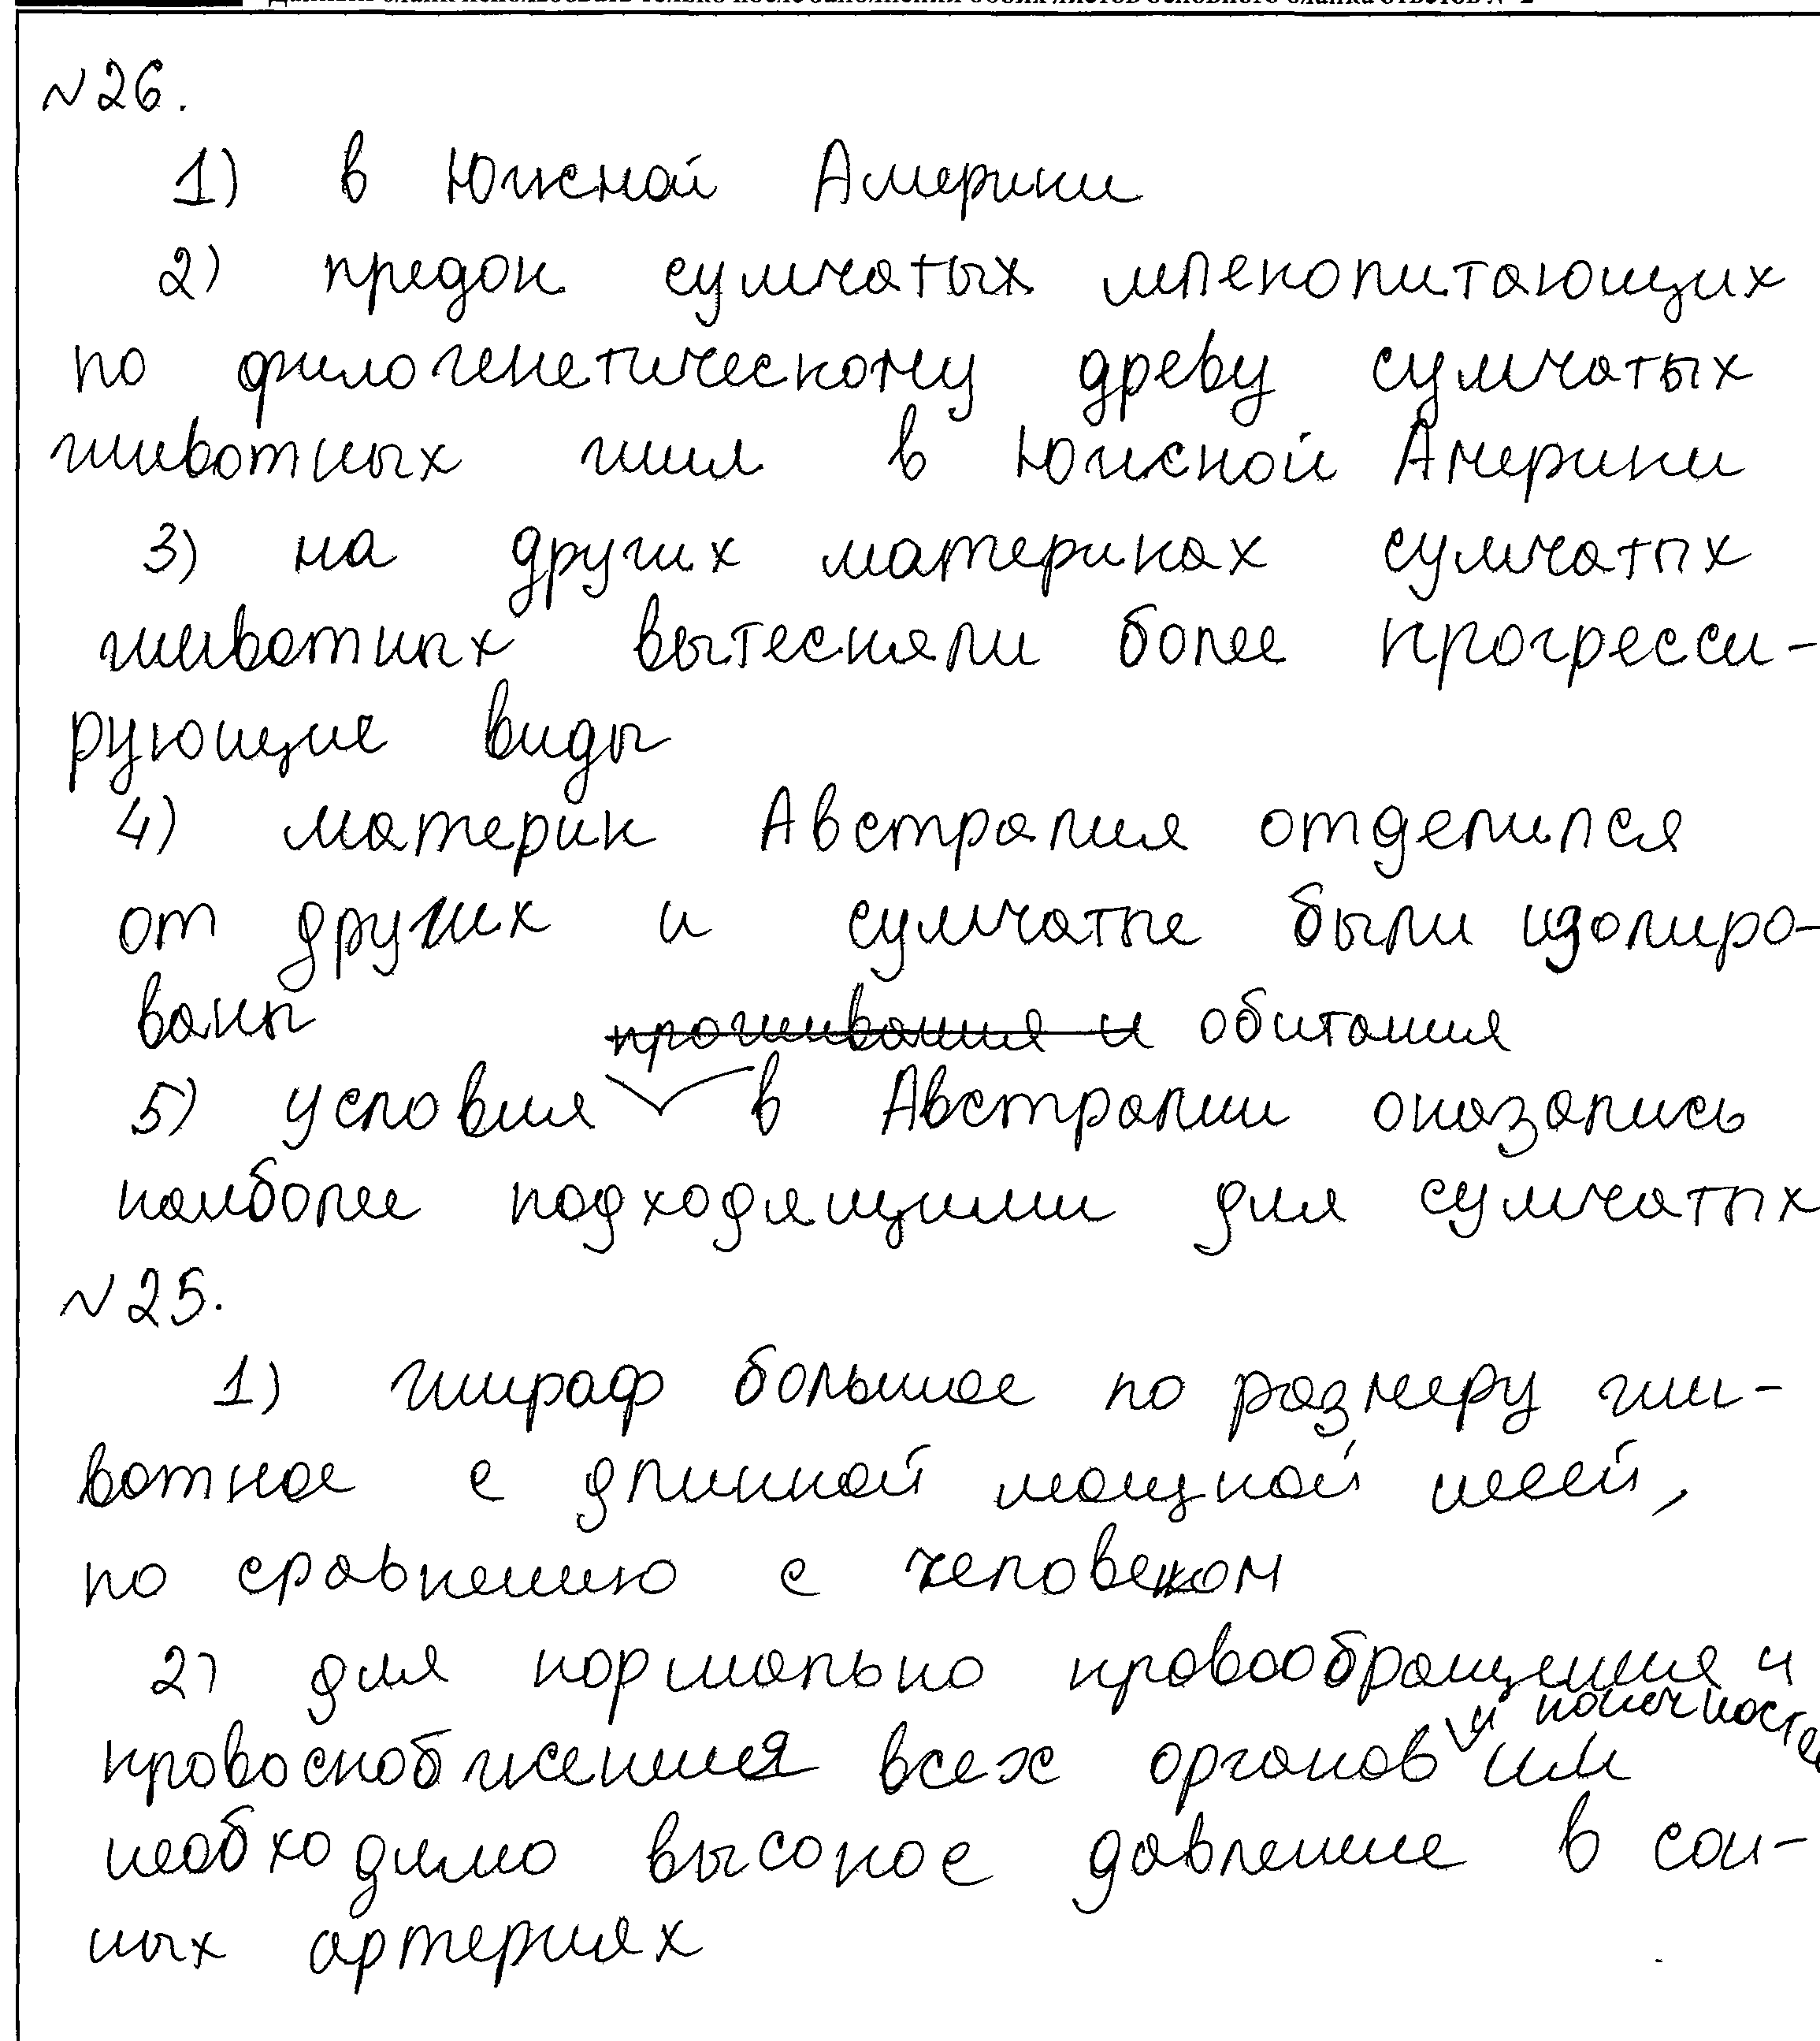 №26.
1) в Южной Америки
2) предок сумчатых млекопитающих
по филогенетическому древу сумчатых
животных жил в Южной Америки
3) на других материках сумчатых
животных вытесняли более прогресси-
рующие виды
4) материк Австралия отделился
от других и сумчатые были изолиро-
ваны
проживания и обитания
5) условия в Австралии оказались
наиболее подходящими для сумчатых
№25.
1) жираф большое по размеру жи-
вотное с длинной мощной шеей,
по сравнению с человеком
2) для нормально кровообращения и
и конечностей
кровоснабжения всех органов им
необходимо высокое давление в сон-
ных артериях